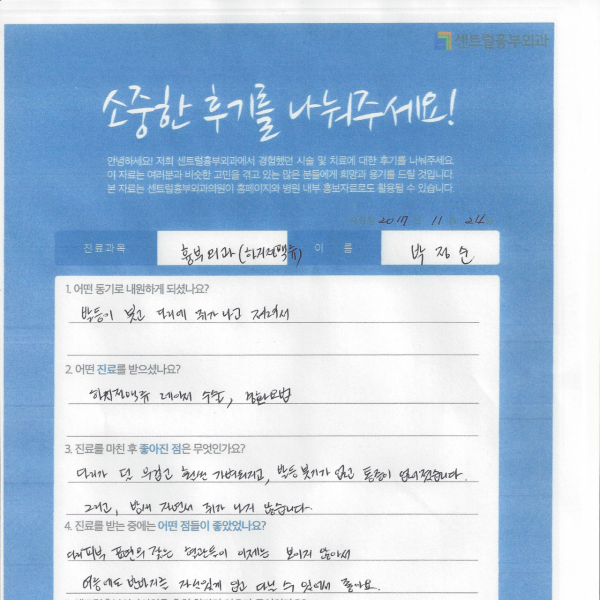 센트럴흉부외과
소중한 후기를 나눠주세요!
안녕하세요! 저희 센트럴흉부외과에서 경험했던 시술 및 치료에 대한 후기를 나눠주세요
이 자료는 여러분과 비슷한 고민을 겪고 있는 많은 분들에게 희망과 용기를 드릴 것입니다
본 자료는 센트럴흉부외과의원이 홈페이지와 병원 내부 홍보자료로도 활용될 수 있습니다.
2017 11 24
진료과목 흉부외과(하지정맥류) 이 름 박정순
1. 어떤 동기로 내원하게 되셨나요?
발등이 붓고 다리에 쥐가 나고 저려서
2. 어떤 진료를 받으셨나요?
하지정맥류 레이저 수술, 경화요법
3. 진료를 마친 후 좋아진 점은 무엇인가요?
다리가 덜 무겁고 훨씬 가벼워지고, 발등 붓기가 없고 통증이 없어졌습니다.
그리고, 밤에 자면서 쥐가 나지 않습니다.
4. 진료를 받는 중에는 어떤 점들이 좋았었나요?
다리피부 표면의 잦은 혈관들이 이제는 보이지 않아서
여름에도 반바지를 자신있게 입고 다닐 수 있어서 좋아요.